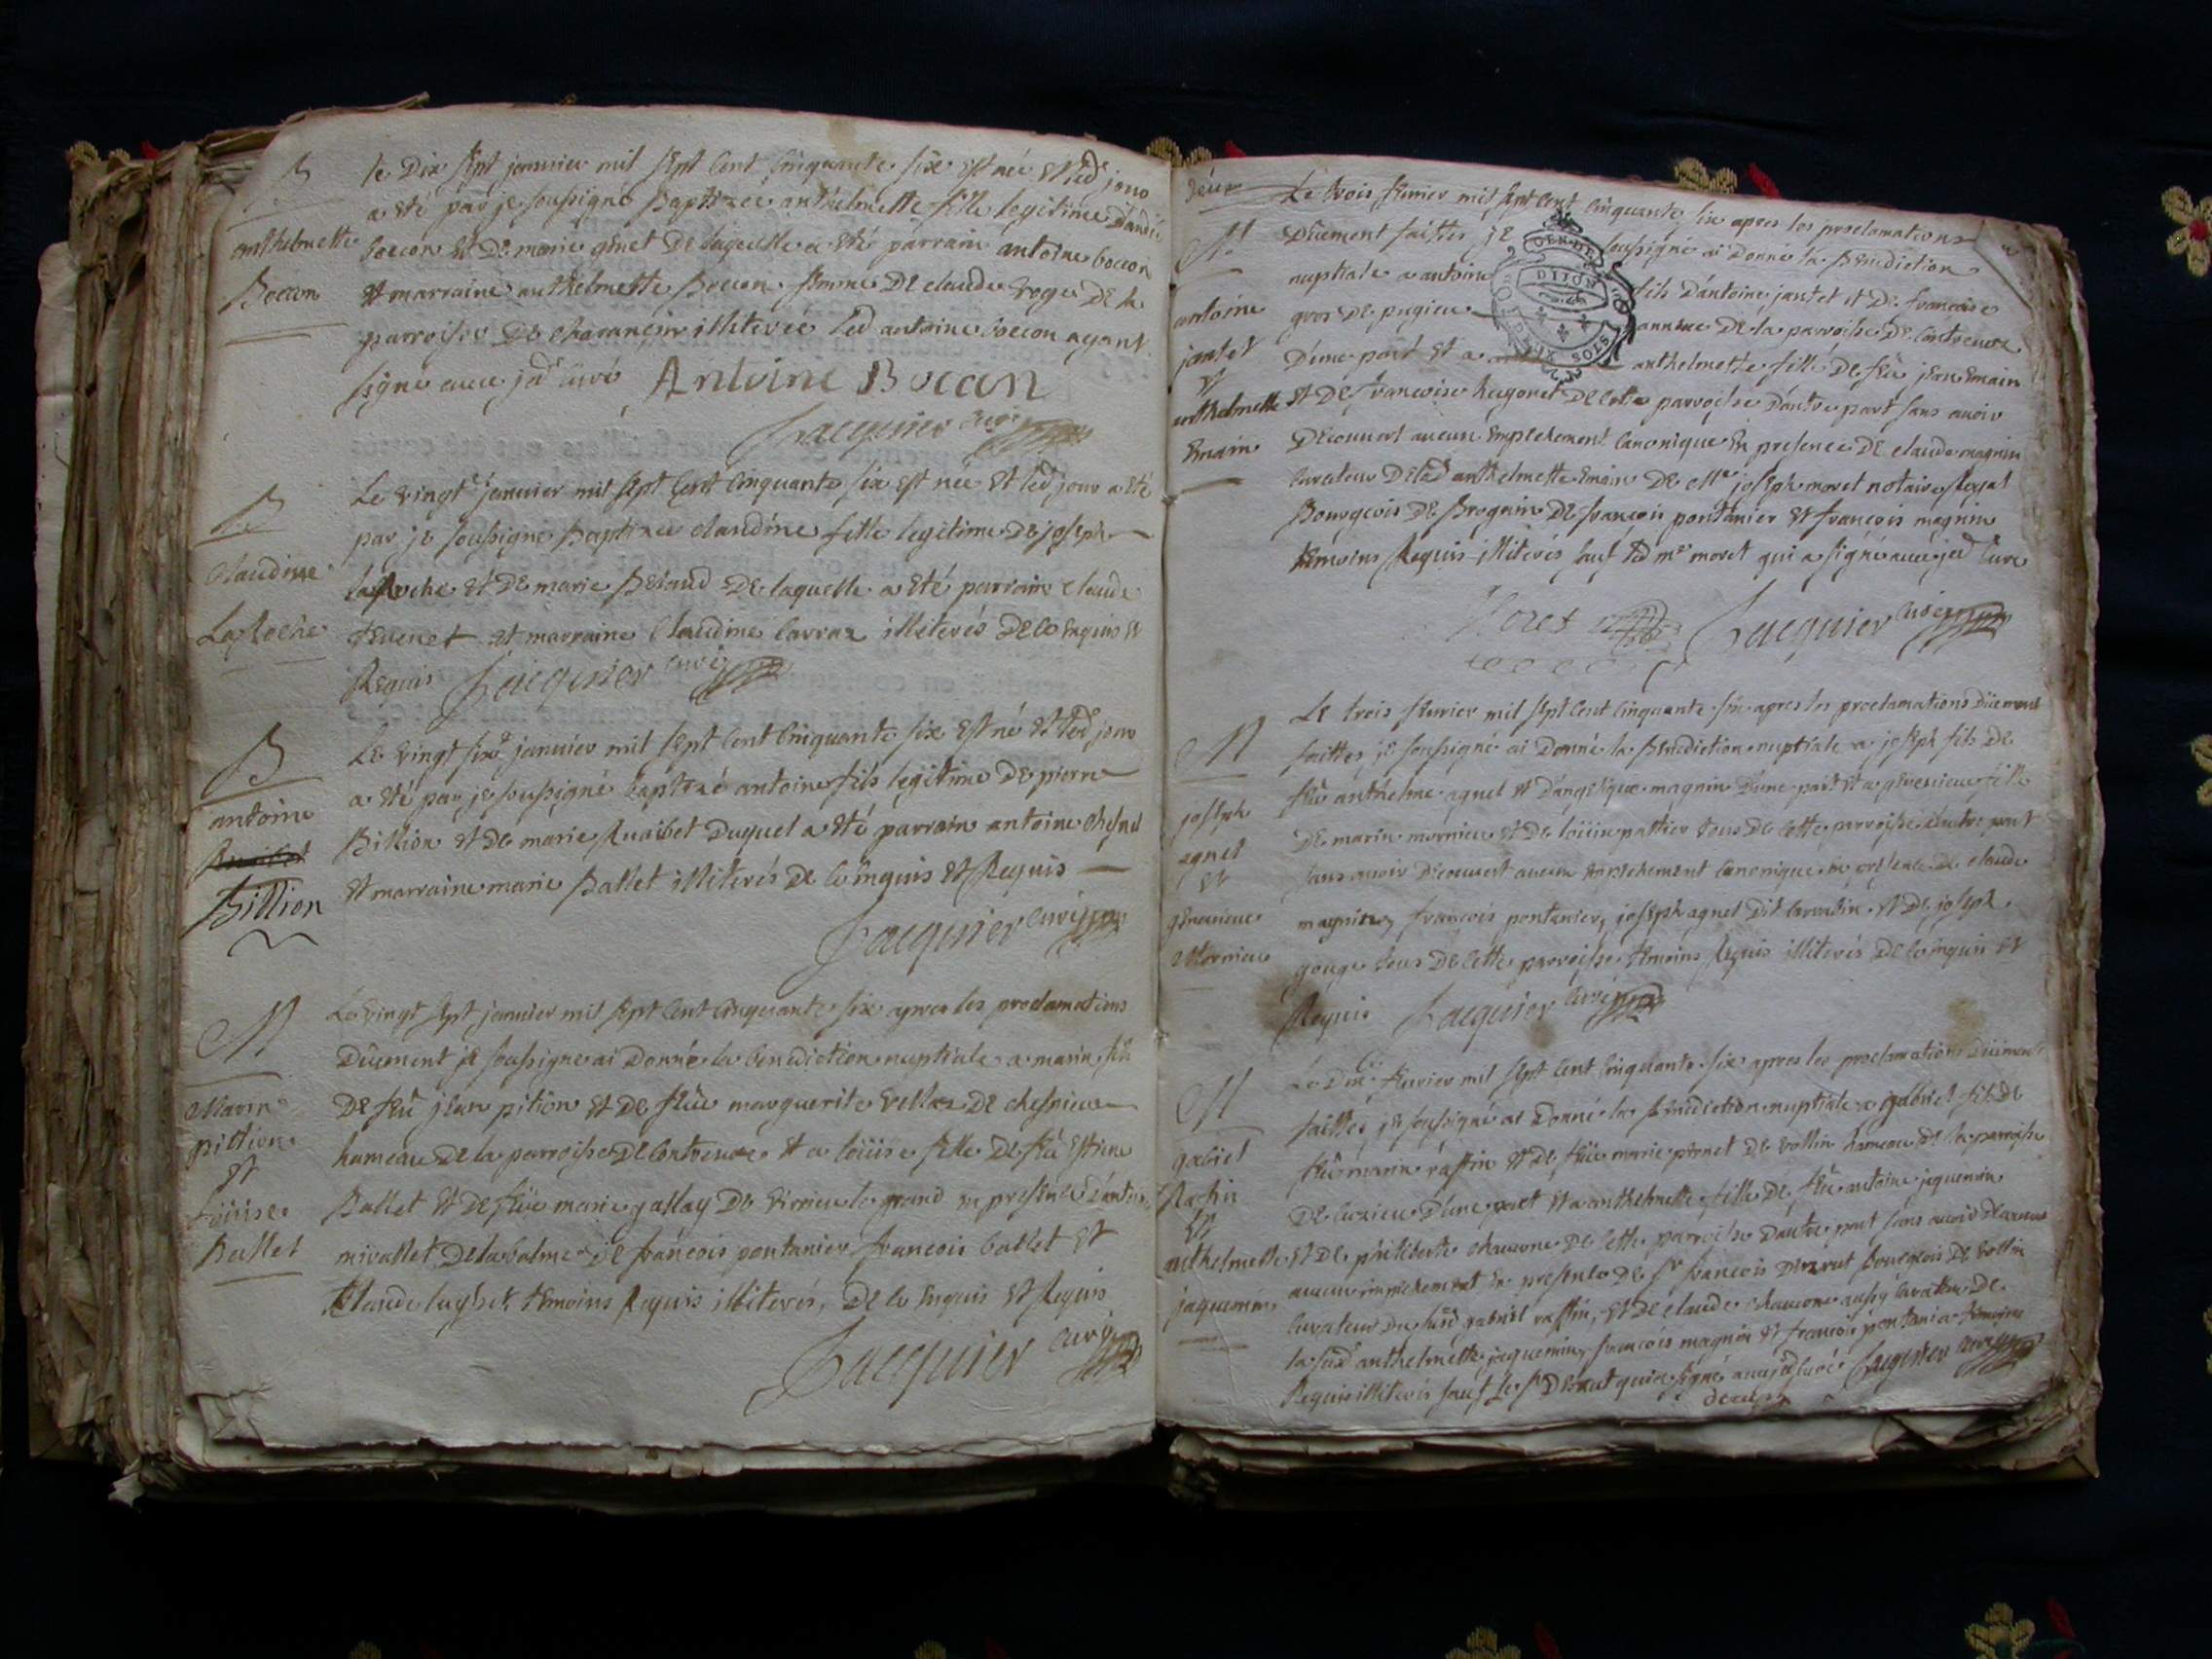 B
anthelmette
Bocon
le Dix sept janvier mil sept Cent Cinquante six est née et led jour
a eté par je soussigné Baptizée anthelmette fille legitime D'andré
bocon et De marie genet De laquelle a eté parrain antoine bocon
et marraine anthelmette Bocon femme De claude roge De la
parroisse De Charancin illiterée led antoine bocon ayant
signé avec jed Curé Antoine Bocon
Jacquier curé
B
Claudine
LaRoche
Le vingt janvier mil sept Cent Cinquante six est née et led jour a eté
par je soussigné Baptizée claudine fille legitime De joseph
LaRoche et De marie Beraud De laquelle a eté parraine claude
tevenet et marraine Claudine Carraz illiterés De ce enquis et
Requis Jacquier curé
B
antoine
Billion
Le vingt six janvier mil sept Cent Cinquante six est né et led jour
a eté par je soussigné baptizé antoine fils legitime De pierre
Billion et De marie Ruaibet Duquel a eté parrain antoine chesnel
et marraine marie Ballet illiterés De ce enquis et Requis
Jacquier curé
M
Marin
pittion
et
Loüise
Ballet
Le vingt sept janvier mil sept Cent Cinquante six apres les proclamations
Dûement je soussigné ai Donné la benediction nuptiale a marin fils
De feû jean pition et De feüe marguerite vellaz De chesnieu
hameau De la parroisse De Contrevoz et a loüise fille De feû Estiene
Ballet et De feüe marie gallay De virieu le grand en presence D'antoine
mirallet De la balme De françois pontanier francois ballet et
Claude temoins Requis illiterés, De ce enquis et Requis
Jacquier curé
Deux
M
antoine
jantet
et
anthelmette
Emain
Le trois fevrier mil sept Cent Cinquante six apres les proclamations
Dûement faittes je soussigné ai Donné la Benediction
nuptiale a antoine fils D'antoine jantet et De francoise
gros De pugieu annexe De la parroisse De Contrevoz
D'une part et a anthelmette fille De feu jean Emain
et De francoise hugonet De cette parroisse D'autre part sans avoir
Découvert aucun empechement Canonique En presence De claude magnin
Curateur De lad anthelmette Emain De Mtre joseph moret notaire Royal
Bourgeois De Brognin De françois pontanier et françois magnin
temoins Requis illiterés sauf led mre moret qui a signé avec jed Curé
Moret Jacquier curé
M
joseph
agnel
et
genevieve
Mornieu
Le trois fevrier mil sept Cent Cinquante six apres les proclamations Dûement
faittes je soussigné ai Donné la Benediction nuptiale a joseph fils De
feû anthelme agnel et D'angelique magnin D'une part et a genevieve fille
De marin mornieu et De loüise pattier tous De cette parroisse D'autre part
sans avoir Découvert aucun empechement Canonique en presence De claude
magnin, françois pontanier, joseph agnel Dit et De joseph
gouge tous De cette parroisse temoins Requis illiterés De ce enquis et
Requis Jacquier curé
M
gabriel
Raffin
et
anthelmette
jaquemin
Le Dix fevrier mil sept Cent Cinquante six apres les proclamations Dûement
faittes je soussigné ai Donné la Benediction nuptiale a gabriel fils De
feû marin raffin et De feüe marie pernet De vollin hameau De la parroisse
De Cuzieu D'une part et a anthelmette fille De feu antoine jaquemin
et De philiberte chavone De cette parroisse D'autre part sans avoir Découvert
aucun empechement En presence De Sr francois Bourgeois De vollin
Curateur Du susd gabriel raffin, et De claude chavone aussy Curateur De
la susd anthelmette jaquemin, francois magnin et francois pontanier temoins
Requis illiterés sauf Le Sr qui a signé avec jed Curé Jacquier curé
GEN DE DIJON